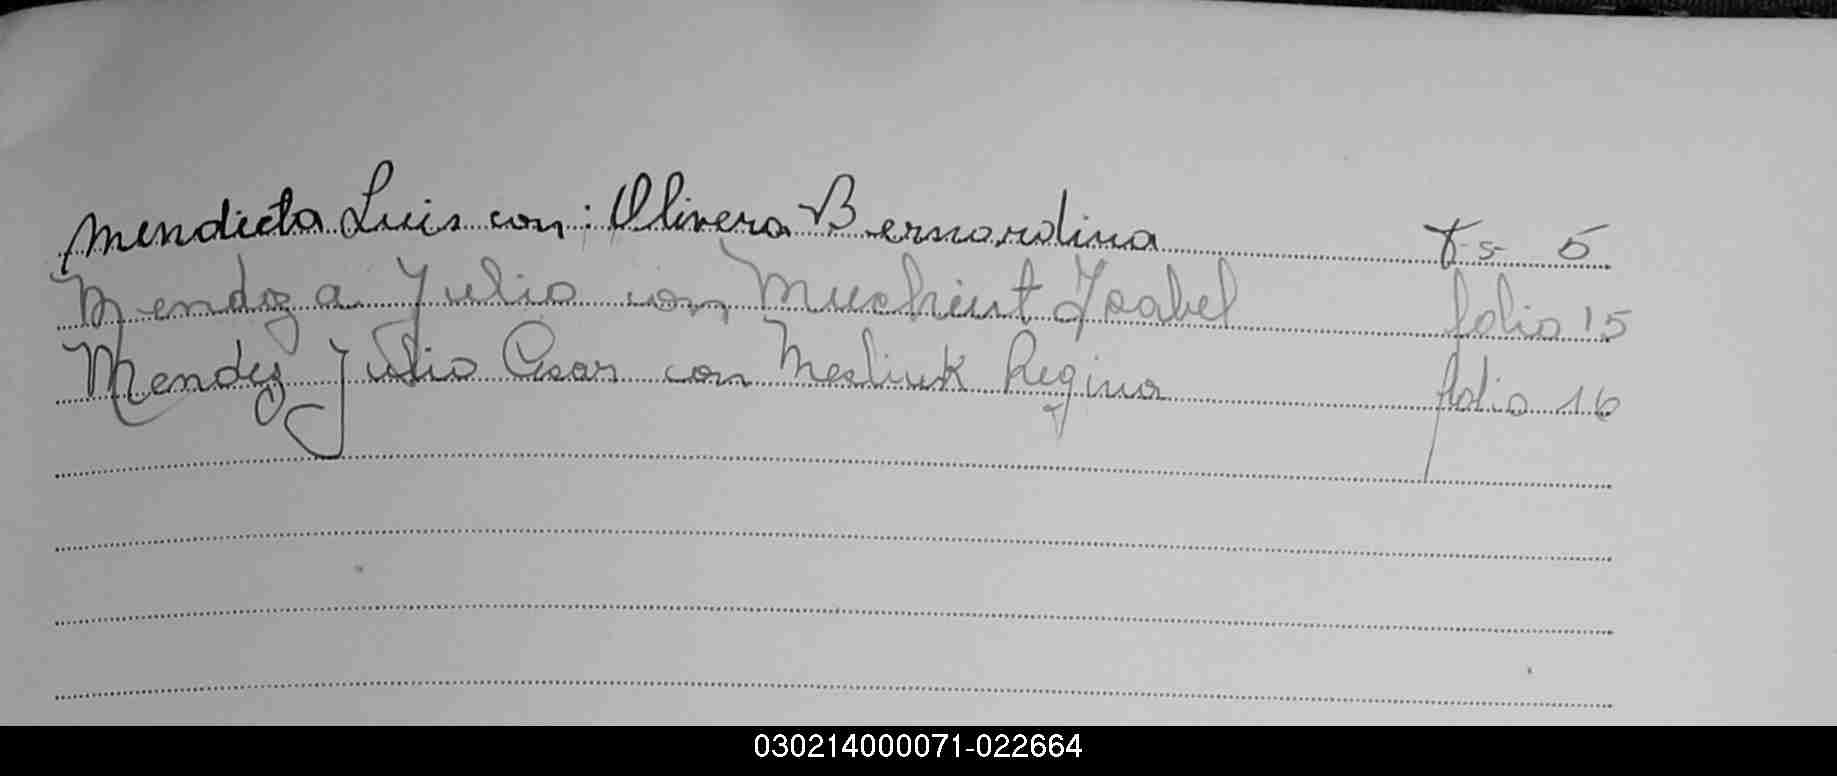 Mendieta Luis con: Olivera Bernardina Fs 5
Mendoza Julio con Muchiut Ysabel folio 15
Mendez Julio Cesar con Mesliuk Regina folio 16
030214000071-022664